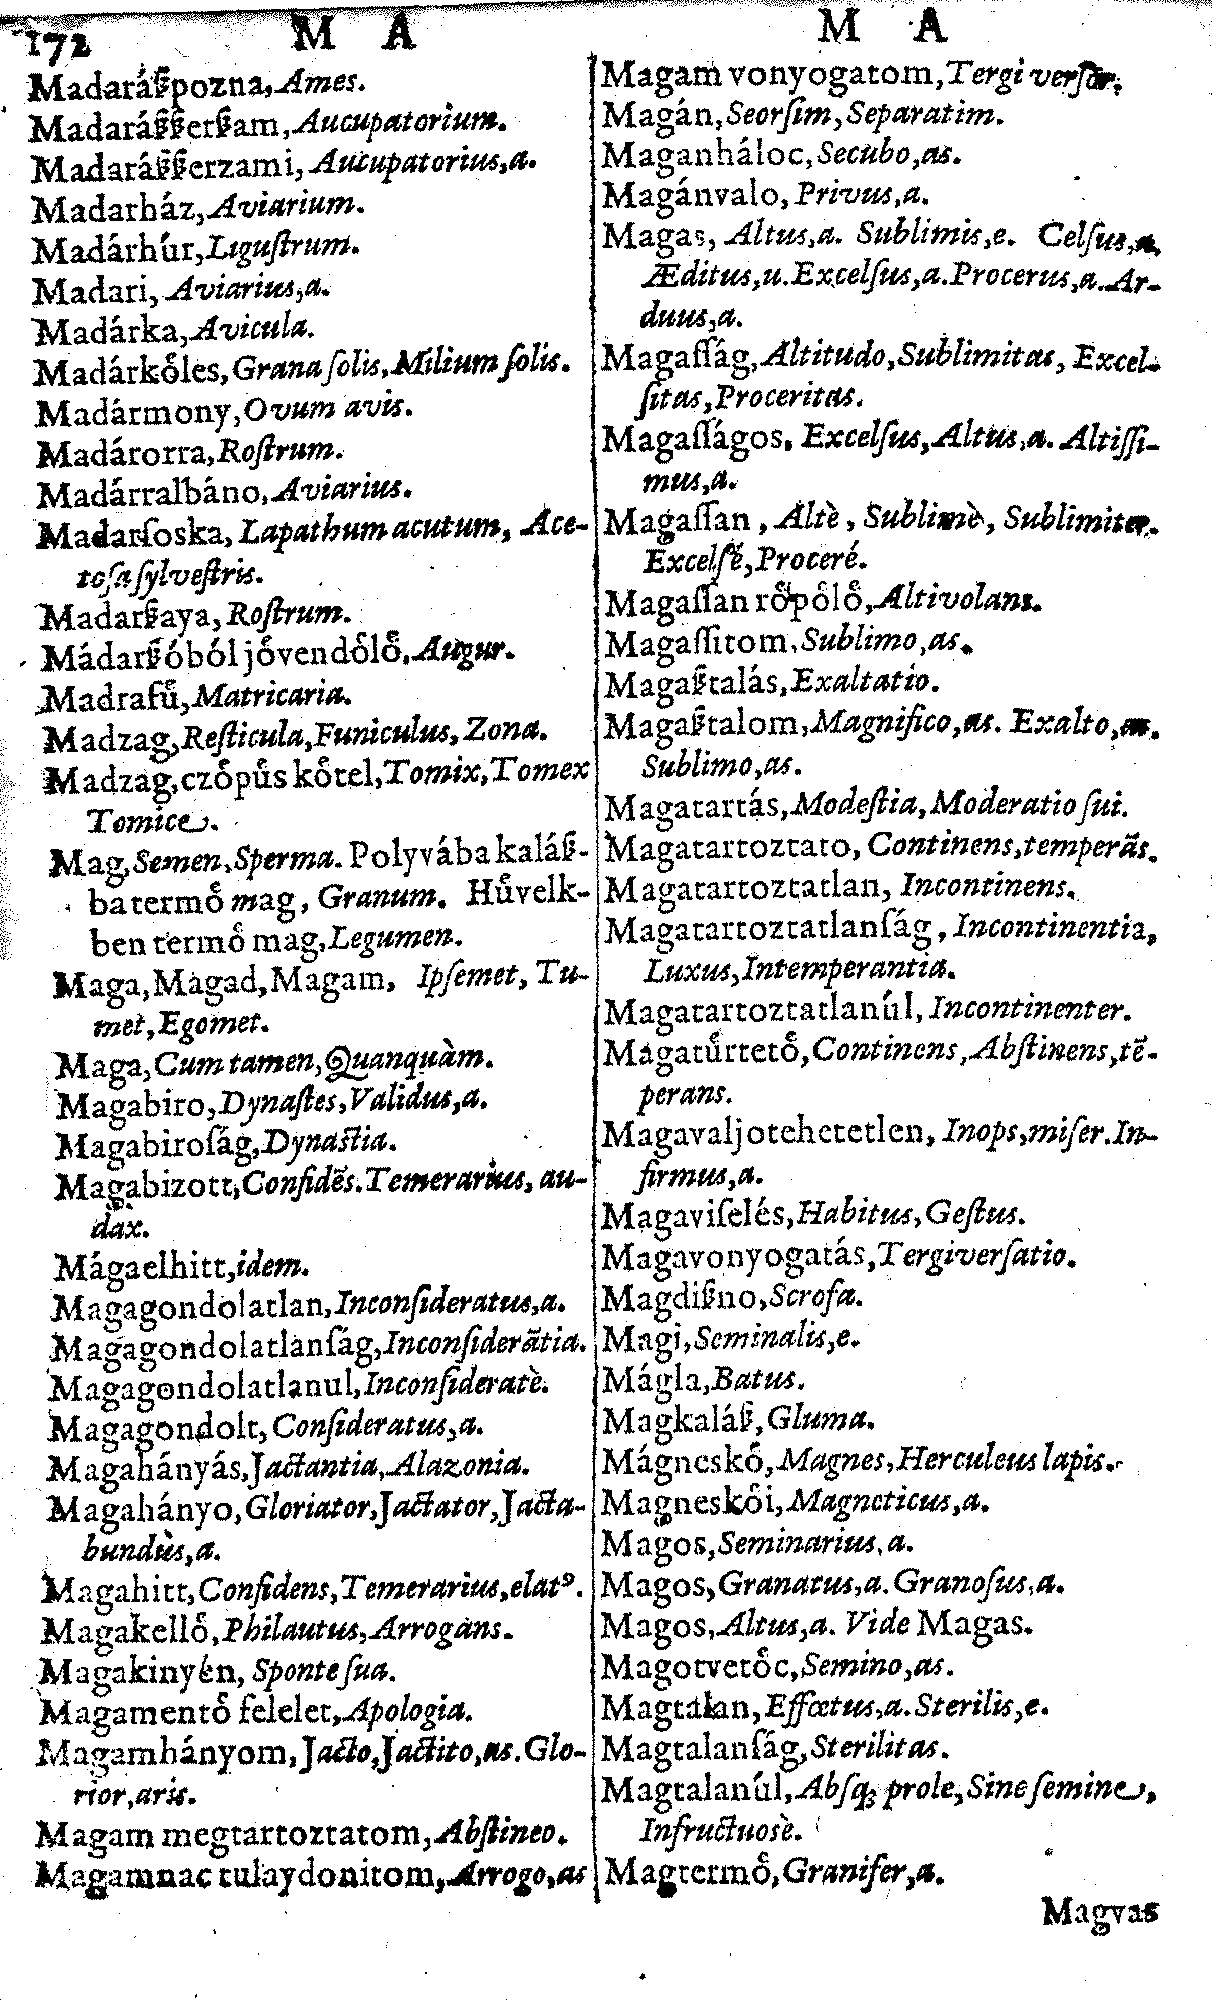 172 M A
Madaráßpozna, Ames.
Madaráßßerßam, Aucupatorium.
Madaráßßerzami, Aucupatorius,a.
Madarház, Aviarium.
Madárhúr, Liguſtrum.
Madari, Aviarius,a.
Madárka, Avicula.
Madárkoͤles, Grana ſolis, Milium ſolis.
Madármony, Ovum avis.
Madárorra, Roſtrum.
Madárralbáno, Aviarius.
Madarſoska, Lapathum acutum, Ace-
toſa ſylveſtris.
Madarßaya, Roſtrum.
Mádarßóból joͤvendoͤloͤ, Augur.
Madrafuͤ, Matricaria.
Madzag, Reſticula, Funiculus, Zona.
Madzag, czoͤpuͤs koͤtel, Tomix, Tomex
Tomice.
Mag, Semen, Sperma. Polyvába kaláß-
ba termoͤ mag, Granum. Huͤvelk-
ben termoͤ mag, Legumen.
Maga, Magad, Magam, Ipſemet, Tu-
met, Egomet.
Maga, Cum tamen, Quanquàm.
Magabiro, Dynaſtes, Validus,a.
Magabiroſág, Dynaſtia.
Magabizott, Confidẽs. Temerarius, au-
dax.
Mágaelhitt, idem.
Magagondolatlan, Inconſideratus,a.
Magagondolatlanſág, Inconſiderãtia.
Magagondolatlanul, Inconſideratè.
Magagondolt, Conſideratus,a.
Magahányás, Jactantia, Alazonia.
Magahányo, Gloriator, Jactator, Jacta-
bundùs,a.
Magahitt, Confidens, Temerarius, elatꝰ.
Magakelloͤ, Philautus, Arrogans.
Magakinyén, Sponte ſua.
Magamentoͤ felelet, Apologia.
Magamhányom, Jacto, Jactito,as. Glo-
rior,aris.
Magam megtartoztatom, Abſtineo.
Magamnac tulaydonitom, Arrogo,as
M A
Magam vonyogatom, Tergi verſor,
Magán, Seorſim, Separatim.
Maganháloc, Secubo,as.
Magánvalo, Privus,a.
Magas, Altus,a. Sublimis,e. Celſus,a,
Æditus,u. Excelſus,a. Procerus,a. Ar-
duus,a.
Magaſſág, Altitudo, Sublimitas, Excel-
ſitas, Proceritas.
Magaſſágos, Excelſus, Altus,a. Altiſſi-
mus,a.
Magaſſan, Altè, Sublimè, Sublimiter.
Excelſé, Proceré.
Magaſſan roͤpoͤloͤ, Altivolans.
Magaſſitom, Sublimo,as.
Magaßtalás, Exaltatio.
Magaßtalom, Magnifico,as. Exalto,as.
Sublimo,as.
Magatartás, Modeſtia, Moderatio ſui.
Magatartoztato, Continens, temperãs.
Magatartoztatlan, Incontinens.
Magatartoztatlanſág, Incontinentia,
Luxus, Intemperantia.
Magatartoztatlanúl, Incontinenter.
Magatuͤrtetoͤ, Continens, Abſtinens, tẽ-
perans.
Magavaljotehetetlen, Inops, miſer. In-
firmus,a.
Magaviſelés, Habitus, Geſtus.
Magavonyogatás, Tergiverſatio.
Magdißno, Scrofa.
Magi, Seminalis,e.
Mágla, Batus.
Magkaláß, Gluma.
Mágneskoͤ, Magnes, Herculeus lapis.
Magneskoͤi, Magneticus,a.
Magos, Seminarius,a.
Magos, Granatus,a. Granoſus,a.
Magos, Altus,a. Vide Magas.
Magotvetoͤc, Semino,as.
Magtalan, Effœtus,a. Sterilis,e.
Magtalanſág, Sterilitas.
Magtalanúl, Abſq; prole, Sine ſemine,
Infructuosè.
Magtermoͤ, Granifer,a.
Magvas